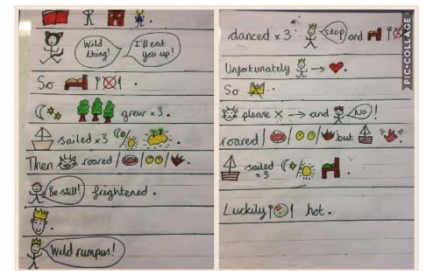 Wild thing!
I'll eat you up!
So
grew x3.
sailed x3
Then roared / / /
Be still! frightened.
Wild rumpus!
danced x3 Stop! and
Unfortunately → .
So
please X → and No!
roared / / / but
sailed x3
Luckily hot.
PIC•COLLAGE